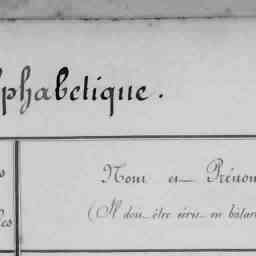 lphabetique.
Nom et Prénom
(Il doit être écrit en bâtar
les